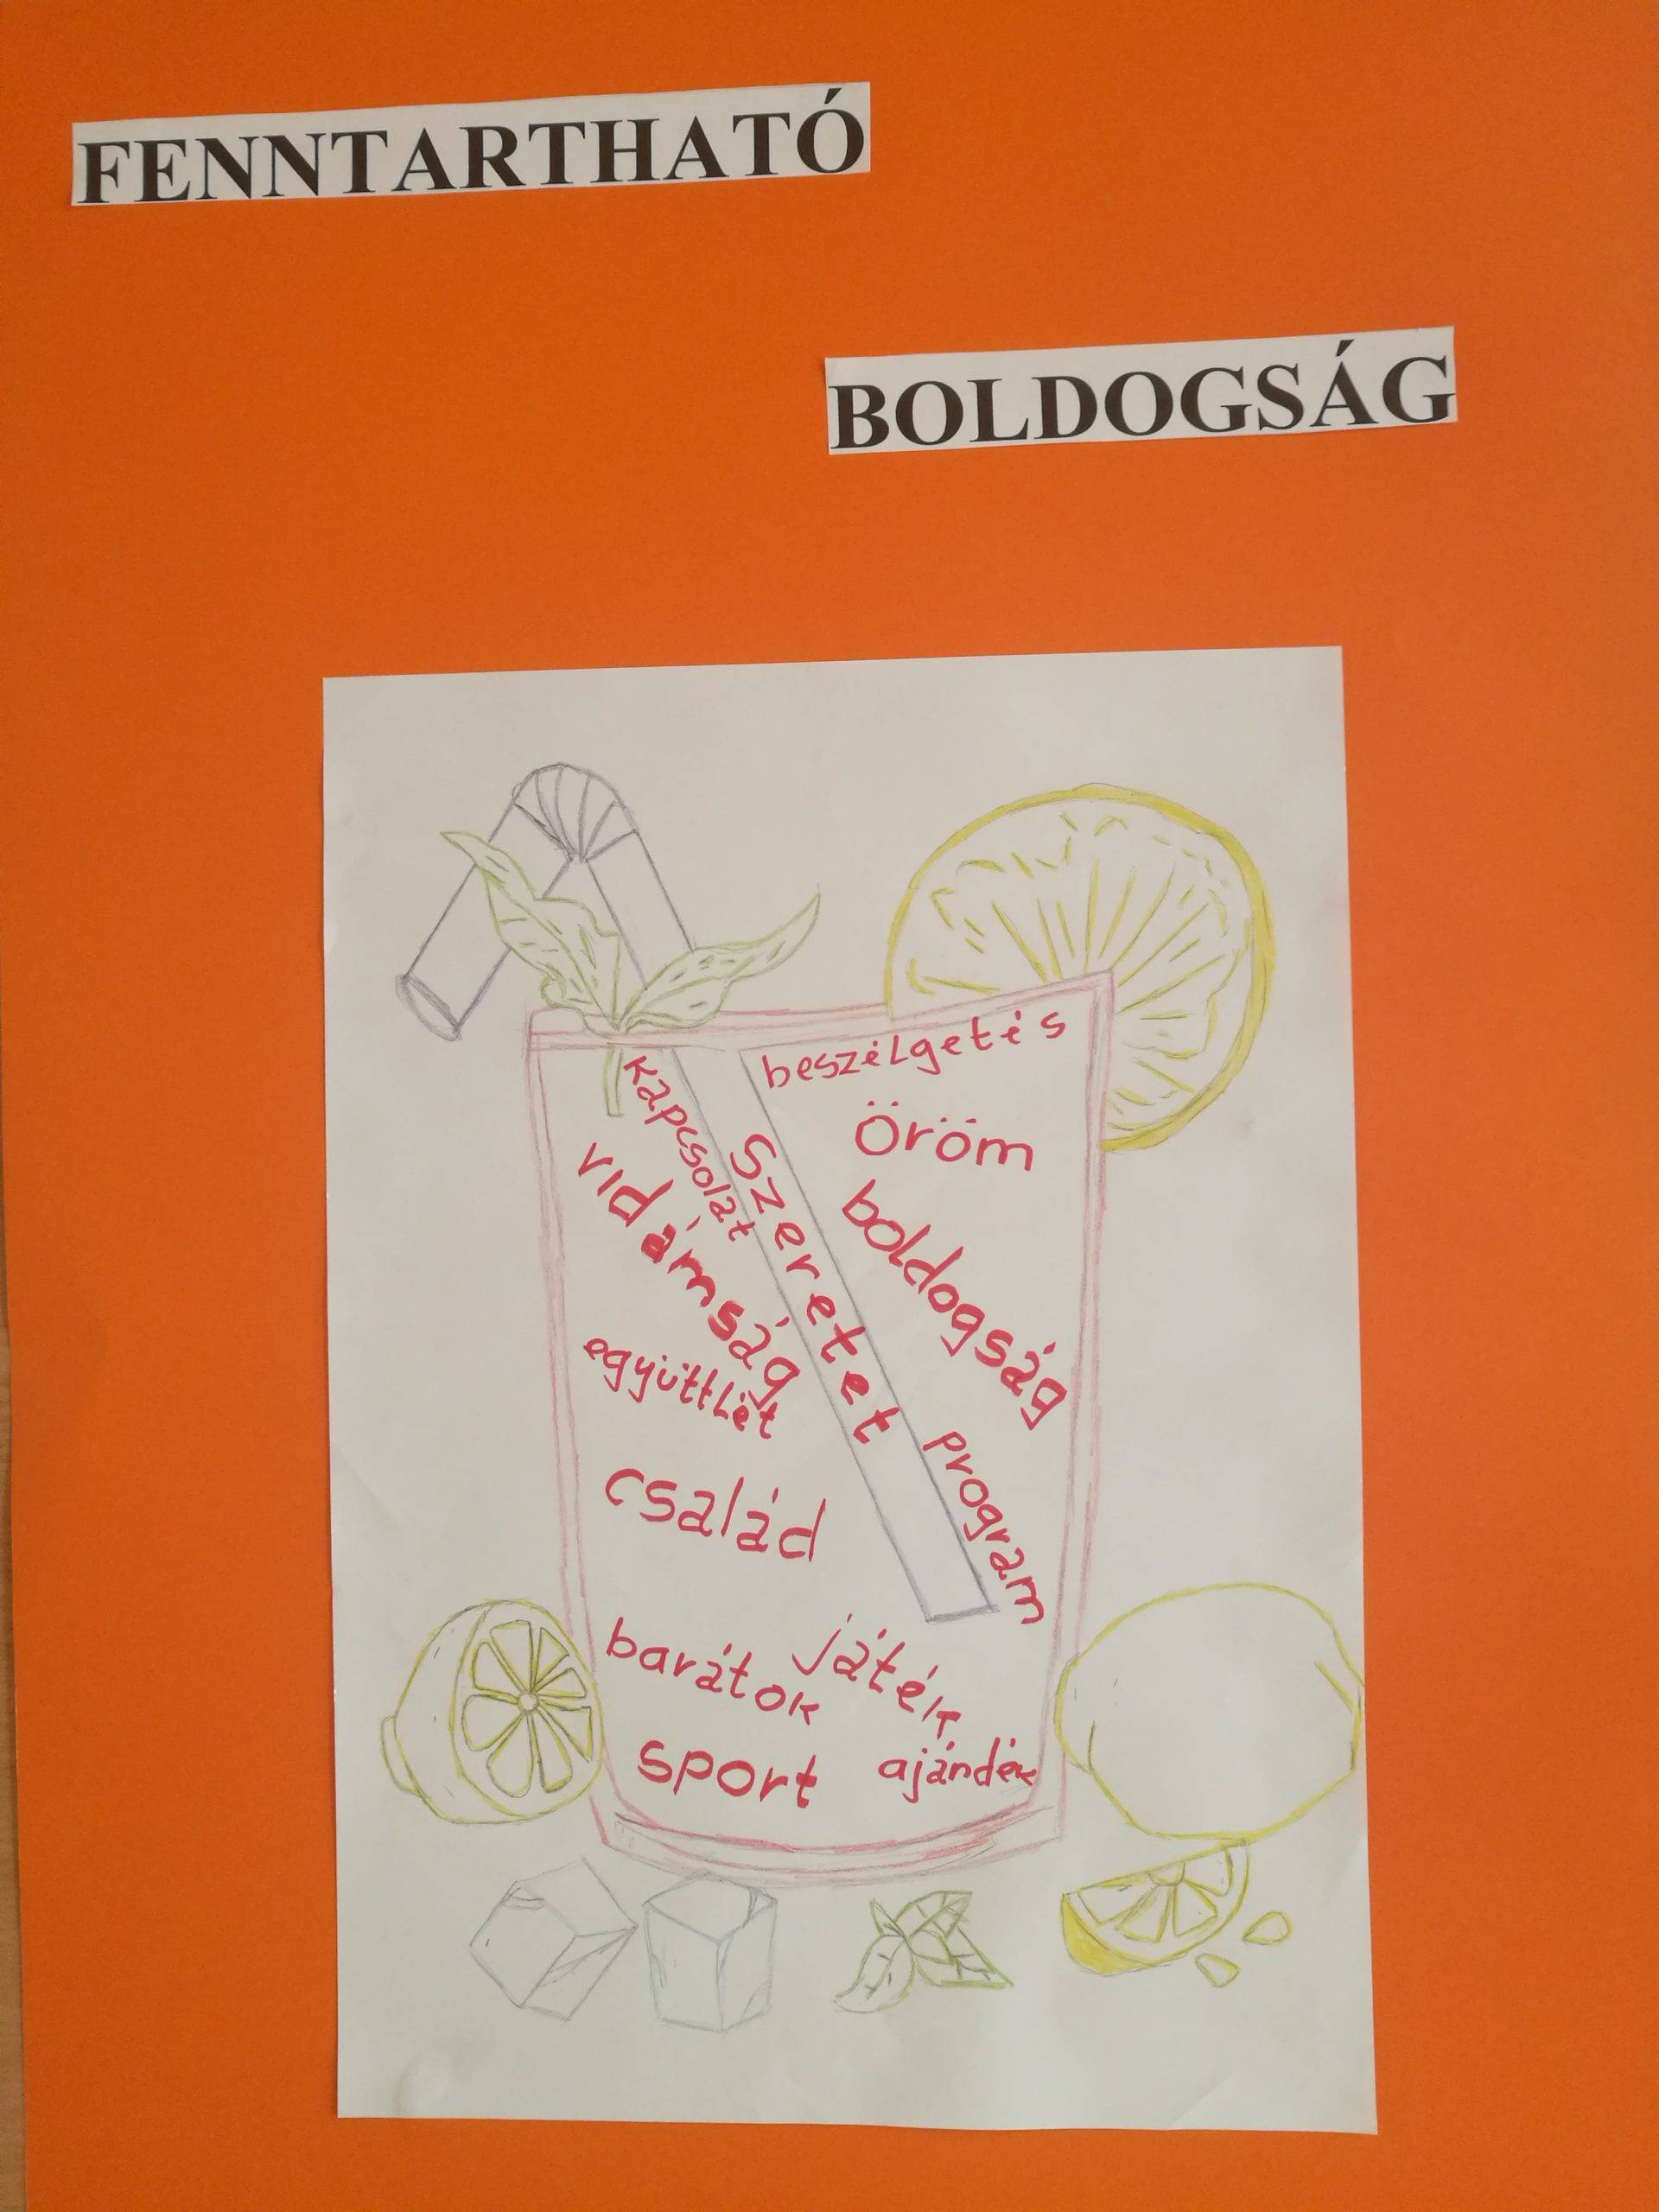 FENNTARTHATÓ
BOLDOGSÁG
beszélgetés
kapcsolat
Öröm
Szeretet
vidámság
boldogság
együttlét
program
család
barátok
játék
sport
ajándék